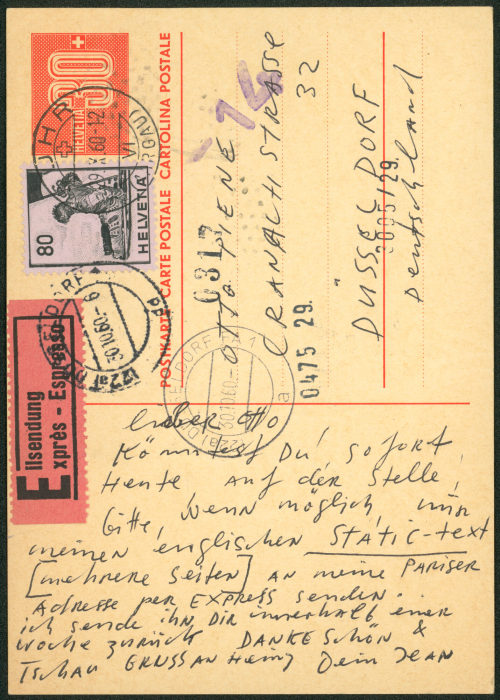 30
HELVETIA
POSTKARTE CARTE POSTALE CARTOLINA POSTALE
80
HELVETIA
Eilsendung
Exprès - Espresso
30.10.60
0317
0475 29.
OTTO PIENE
CRANACHSTRASSE
32
DÜSSELDORF
Deutschland
Lieber Otto
Könntest Du sofort,
Heute auf der Stelle,
bitte, wenn möglich, mir
meinen englischen STATIC-text
[mehrere Seiten] AN meine PARISER
Adresse per EXPRESS senden.
ich sende ihn Dir innerhalb einer
woche zurück DANKE SCHÖN &
Tschau GRUSS AN Heinz Dein JEAN